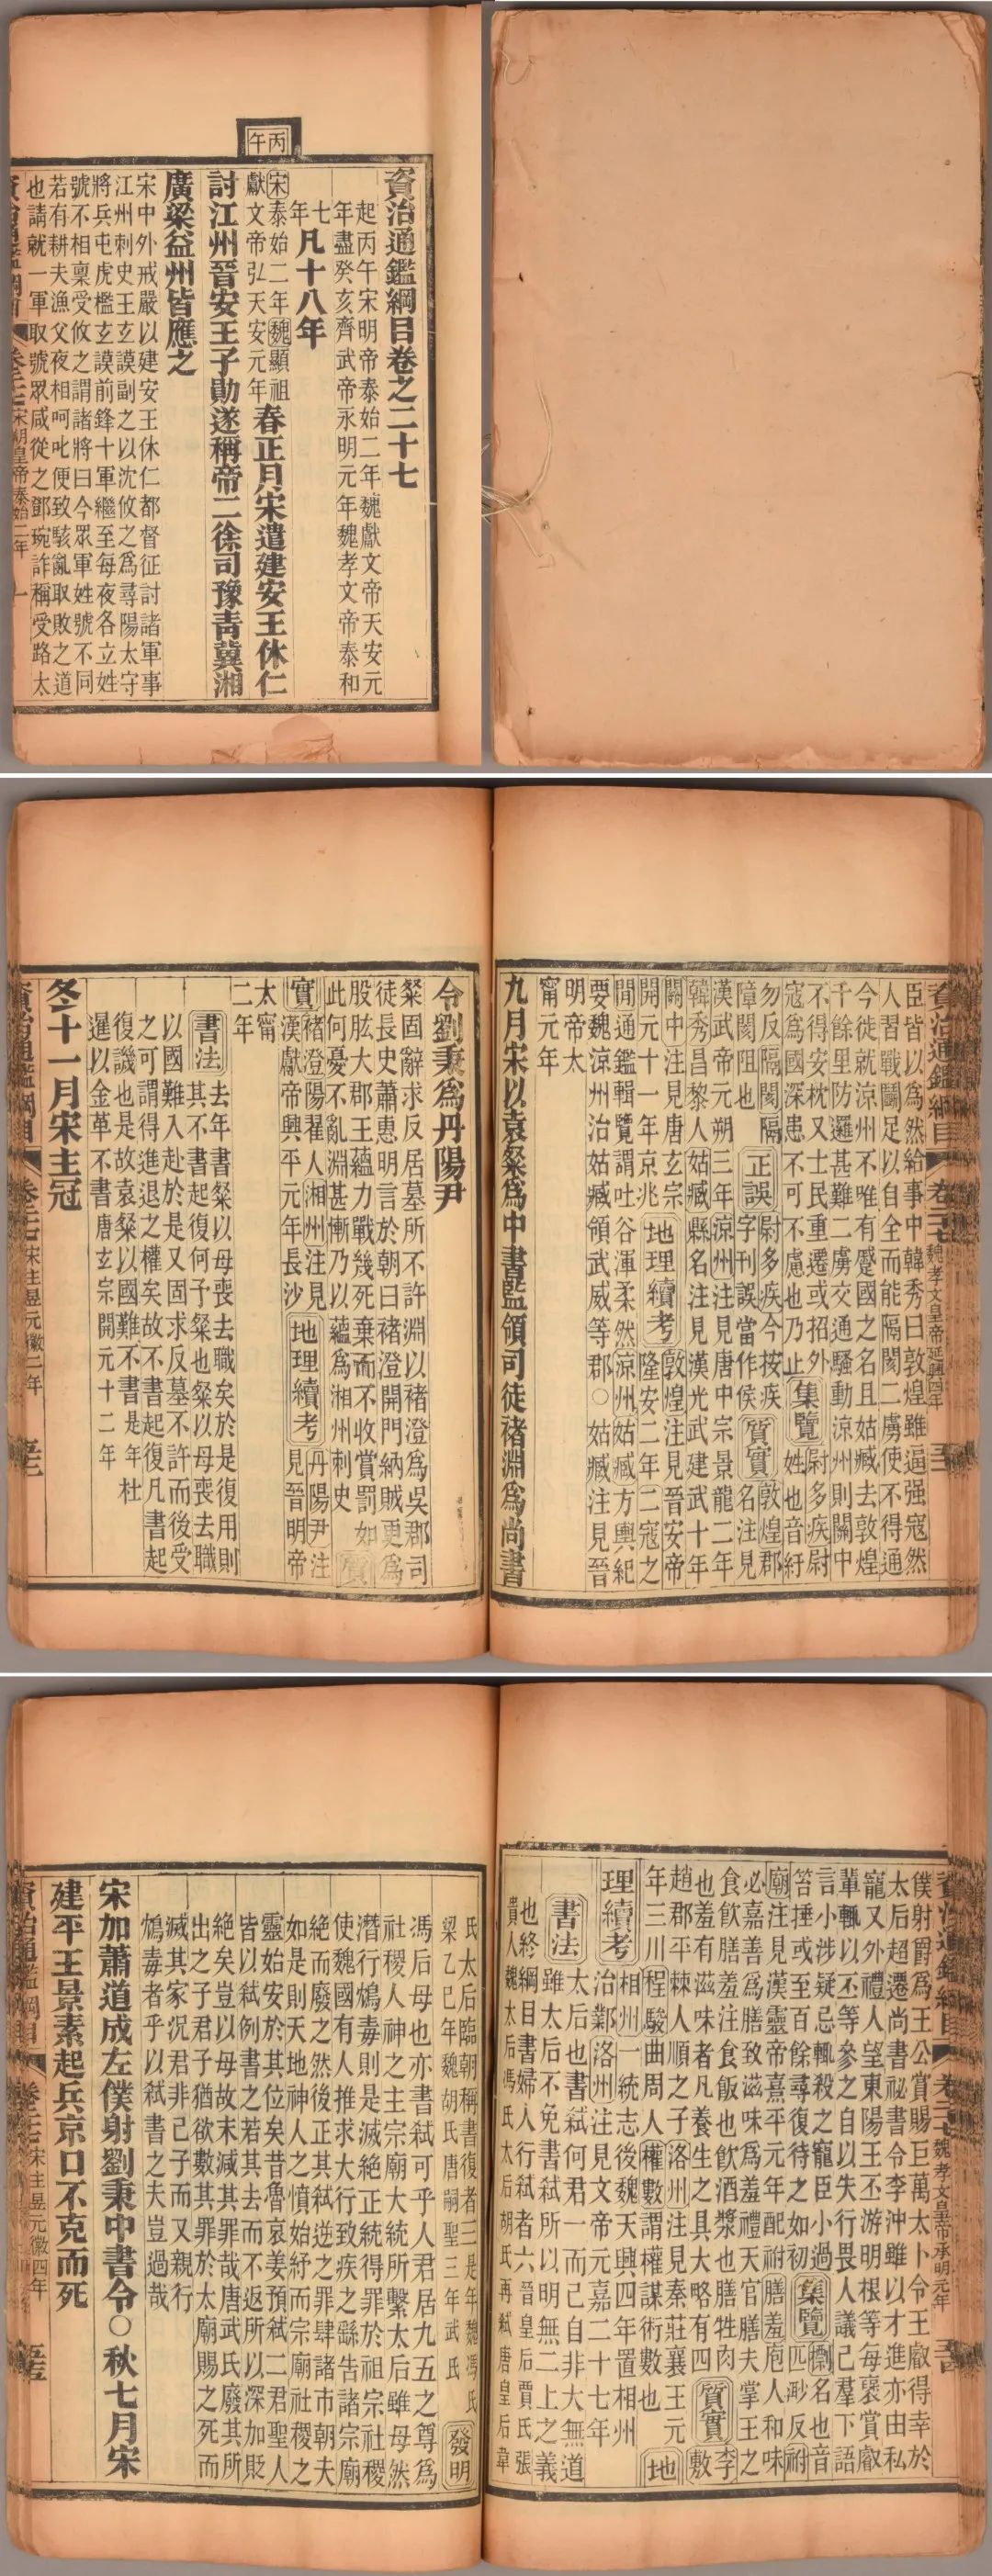 丙午
資治通鑑綱目卷之二十七
起丙午宋明帝泰始二年魏獻文帝天安元
年盡癸亥齊武帝永明元年魏孝文帝泰和
七
年凡十八年
宋泰始二年魏顯祖
獻文帝弘天安元年
春正月宋遣建安王休仁
討江州晉安王子勛遂稱帝二徐司豫青冀湘
廣梁益州皆應之
宋中外戒嚴以建安王休仁都督征討諸軍事
江州刺史王玄謨副之以沈攸之為尋陽太守
將兵屯虎檻玄謨前鋒十軍繼至每夜各立姓
號不相稟受攸之謂諸將曰今眾軍姓號不同
若有耕夫漁父夜相呵叱便致駭亂取敗之道
也請就一軍取號眾咸從之鄧琬詐稱受路太
資治通鑑綱目 卷二十七 宋明皇帝泰始二年 一
資治通鑑綱目 卷二十七 魏孝文皇帝延興四年
臣皆以為然給事中韓秀曰敦煌雖逼强寇然
人習戰鬭足以自全而能隔閡二虜使不得通
今徙就涼州不唯有蹙國之名且姑臧去敦煌
千餘里防邏甚難二虜交通騷動涼州則關中
不得安枕又士民重遷或招外
寇為國深患不可不慮也乃止
集覽
尉多疾尉
姓也音紆
勿反隔閡隔
障閡阻也
正誤
尉多疾今按疾
字刊誤當作侯
質實
敦煌郡
名注見
漢武帝元朔三年涼州注見唐中宗景龍二年
韓秀昌黎人姑臧縣名注見漢光武建武十年
關中注見唐玄宗
開元十一年京兆
地理續考
敦煌注見晉安帝
隆安二年二寇之
閒通鑑輯覽謂吐谷渾柔然涼州姑臧方輿紀
要魏涼州治姑臧領武威等郡○姑臧注見晉
明帝太
甯元年
九月宋以袁粲為中書監領司徒褚淵為尚書
令劉秉為丹陽尹
粲固辭求反居墓所不許淵以褚澄為吳郡司
徒長史蕭惠明言於朝曰褚澄開門納賊更為
股肱大郡王蘊力戰幾死棄而不收賞罰如
此何憂不亂淵甚慚乃以蘊為湘州刺史
質
實
褚澄陽翟人湘州注見
漢獻帝興平元年長沙
地理續考
丹陽尹注
見晉明帝
太甯
二年
書法
去年書粲以母喪去職矣於是復用則
其不書起復何子粲也粲以母喪去職
以國難入赴於是又固求反墓不許而後受
之可謂得進退之權矣故不書起復凡書起
復譏也是故袁粲以國難不書是年杜
暹以金革不書唐玄宗開元十二年
冬十一月宋主冠
資治通鑑綱目 卷二十七 宋主昱元徽二年 五十二
資治通鑑綱目 卷二十七 魏孝文皇帝承明元年 五十四
僕射爵為王公賞賜巨萬太卜令王叡得幸於
太后超遷尚書祕書令李沖雖以才進亦由私
寵又外禮人望東陽王丕游明根等每褒賞叡
輩輒以丕等參之自以失行畏人議己羣下語
言小涉疑忌輒殺之寵臣小過
笞捶或至百餘尋復待之如初
集覽
劘名也音
匹沔反祔
廟注見漢靈帝熹平元年配祔膳羞庖人和味
必嘉善為膳致滋味為羞禮天官膳夫掌王之
食飲膳羞注食飯也飲酒漿也膳牲肉
也羞有滋味者凡養生之具大略有四
質實
李
敷
趙郡平棘人順之子洛州注見秦莊襄王元
年三川程駿曲周人權數謂權謀術數也
地
理續考
相州一統志後魏天興四年置相州
治鄴洛州注見文帝元嘉二十七年
書法
太后也書弑何君一而己自非大無道
雖太后不免書弑所以明無二上之義
也終綱目書婦人行弑者六晉皇后賈氏張
貴人魏太后馮氏太后胡氏再弑唐皇后韋
氏太后臨朝稱書復者三是年魏馮氏
梁乙巳年魏胡氏唐嗣聖三年武氏
發明
馮后母也亦書弑可乎人君居九五之尊為
社稷人神之主宗廟大統所繫太后雖母然
潛行鴆毒則是滅絕正統得罪於祖宗社稷
使魏國有人推求大行致疾之繇告諸宗廟
絕而廢之然後正其弑逆之罪肆諸市朝夫
如是則天地神人之憤始紓而宗廟社稷之
靈始安於其位矣昔魯哀姜預弑二君聖人
皆以弑例書之若其去而不返所以深加貶
絕矣豈以母故末減其罪哉唐武氏廢其所
出之子君子猶欲數其罪於太廟賜之死而
滅其家況君非己子而又親行
鴆毒者乎以弑書之夫豈過哉
宋加蕭道成左僕射劉秉中書令○秋七月宋
建平王景素起兵京口不克而死
資治通鑑綱目 卷二十七 宋主昱元徽四年 五十五